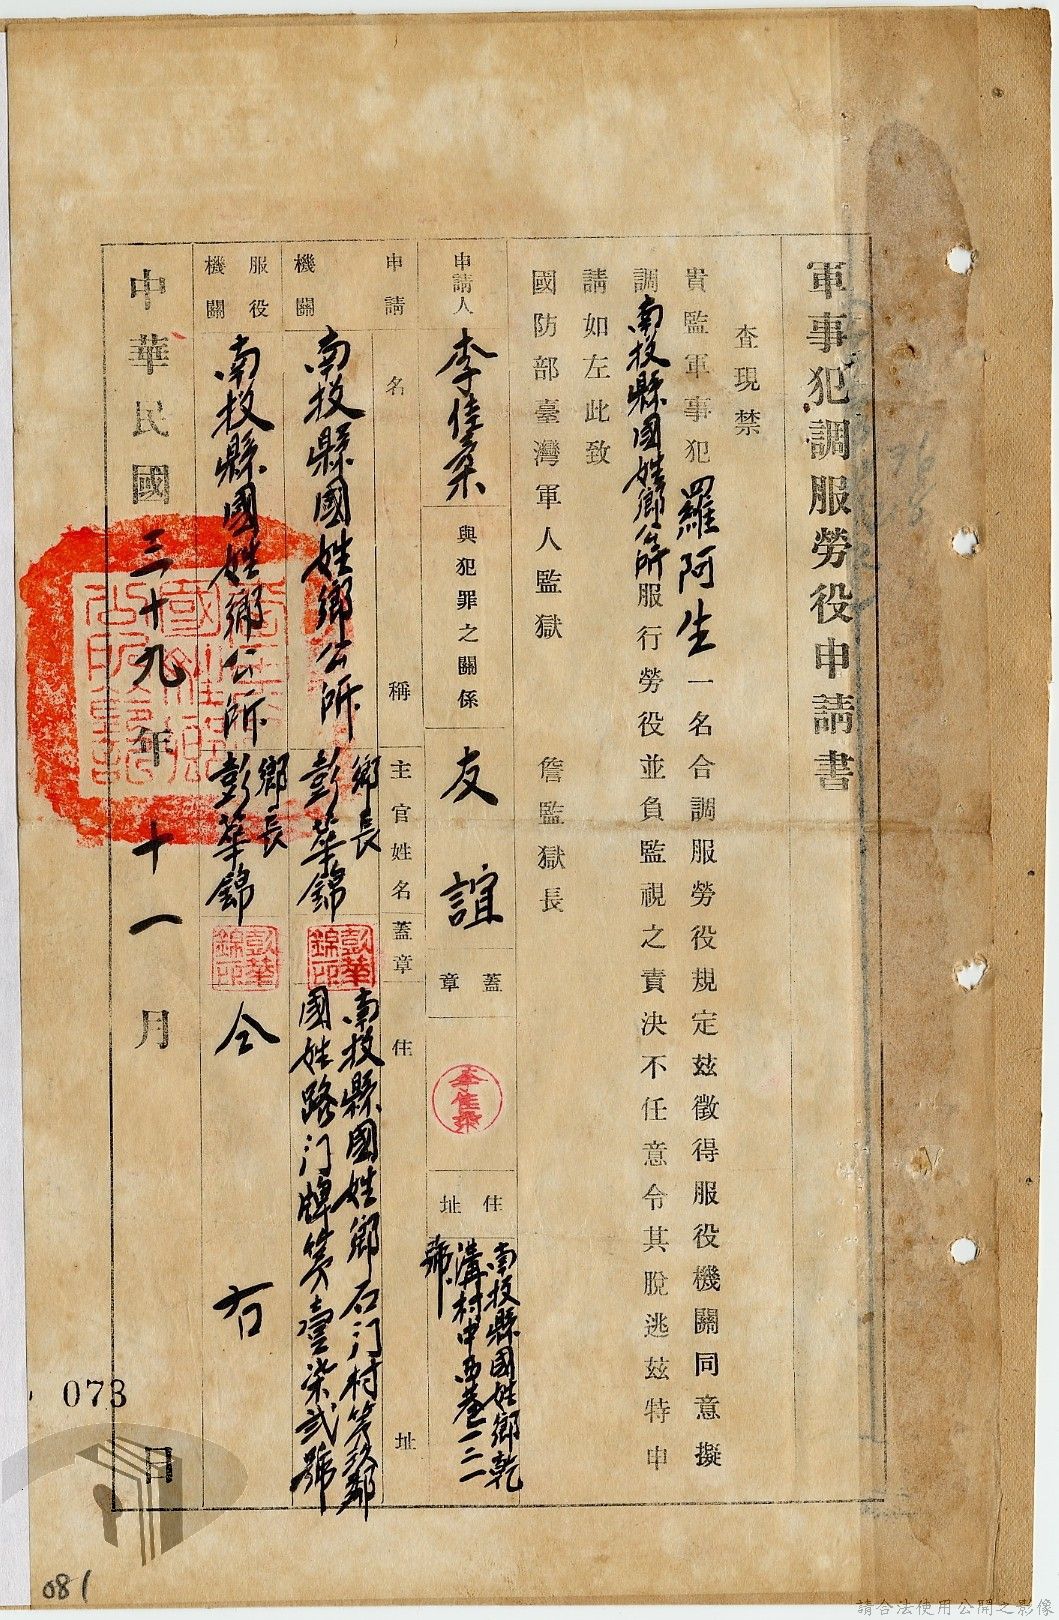 軍事犯調服勞役申請書
查現禁
貴監軍事犯羅阿生一名合調服勞役規定玆徵得服役機關同意擬
調南投縣國姓鄉公所服行勞役並負監視之責決不任意令其脫逃玆特申
請如左此致
國防部臺灣軍人監獄 詹監獄長
申請人 李佳桑 與犯罪之關係 友誼 蓋章 李佳桑 住址 南投縣國姓鄉乾
溝村中西巷一二一
號
申請機關 名稱 主官姓名 蓋章 住址
南投縣國姓鄉公所 鄉長 彭華錦 彭華錦印 南投縣國姓鄉石门村第玖鄰
國姓路门牌第壹柒弍號
服役機關 南投縣國姓鄉公所 鄉長 彭華錦 彭華錦印 仝右
中華民國三十九年十一月 日
073
081
請合法使用公開之影像